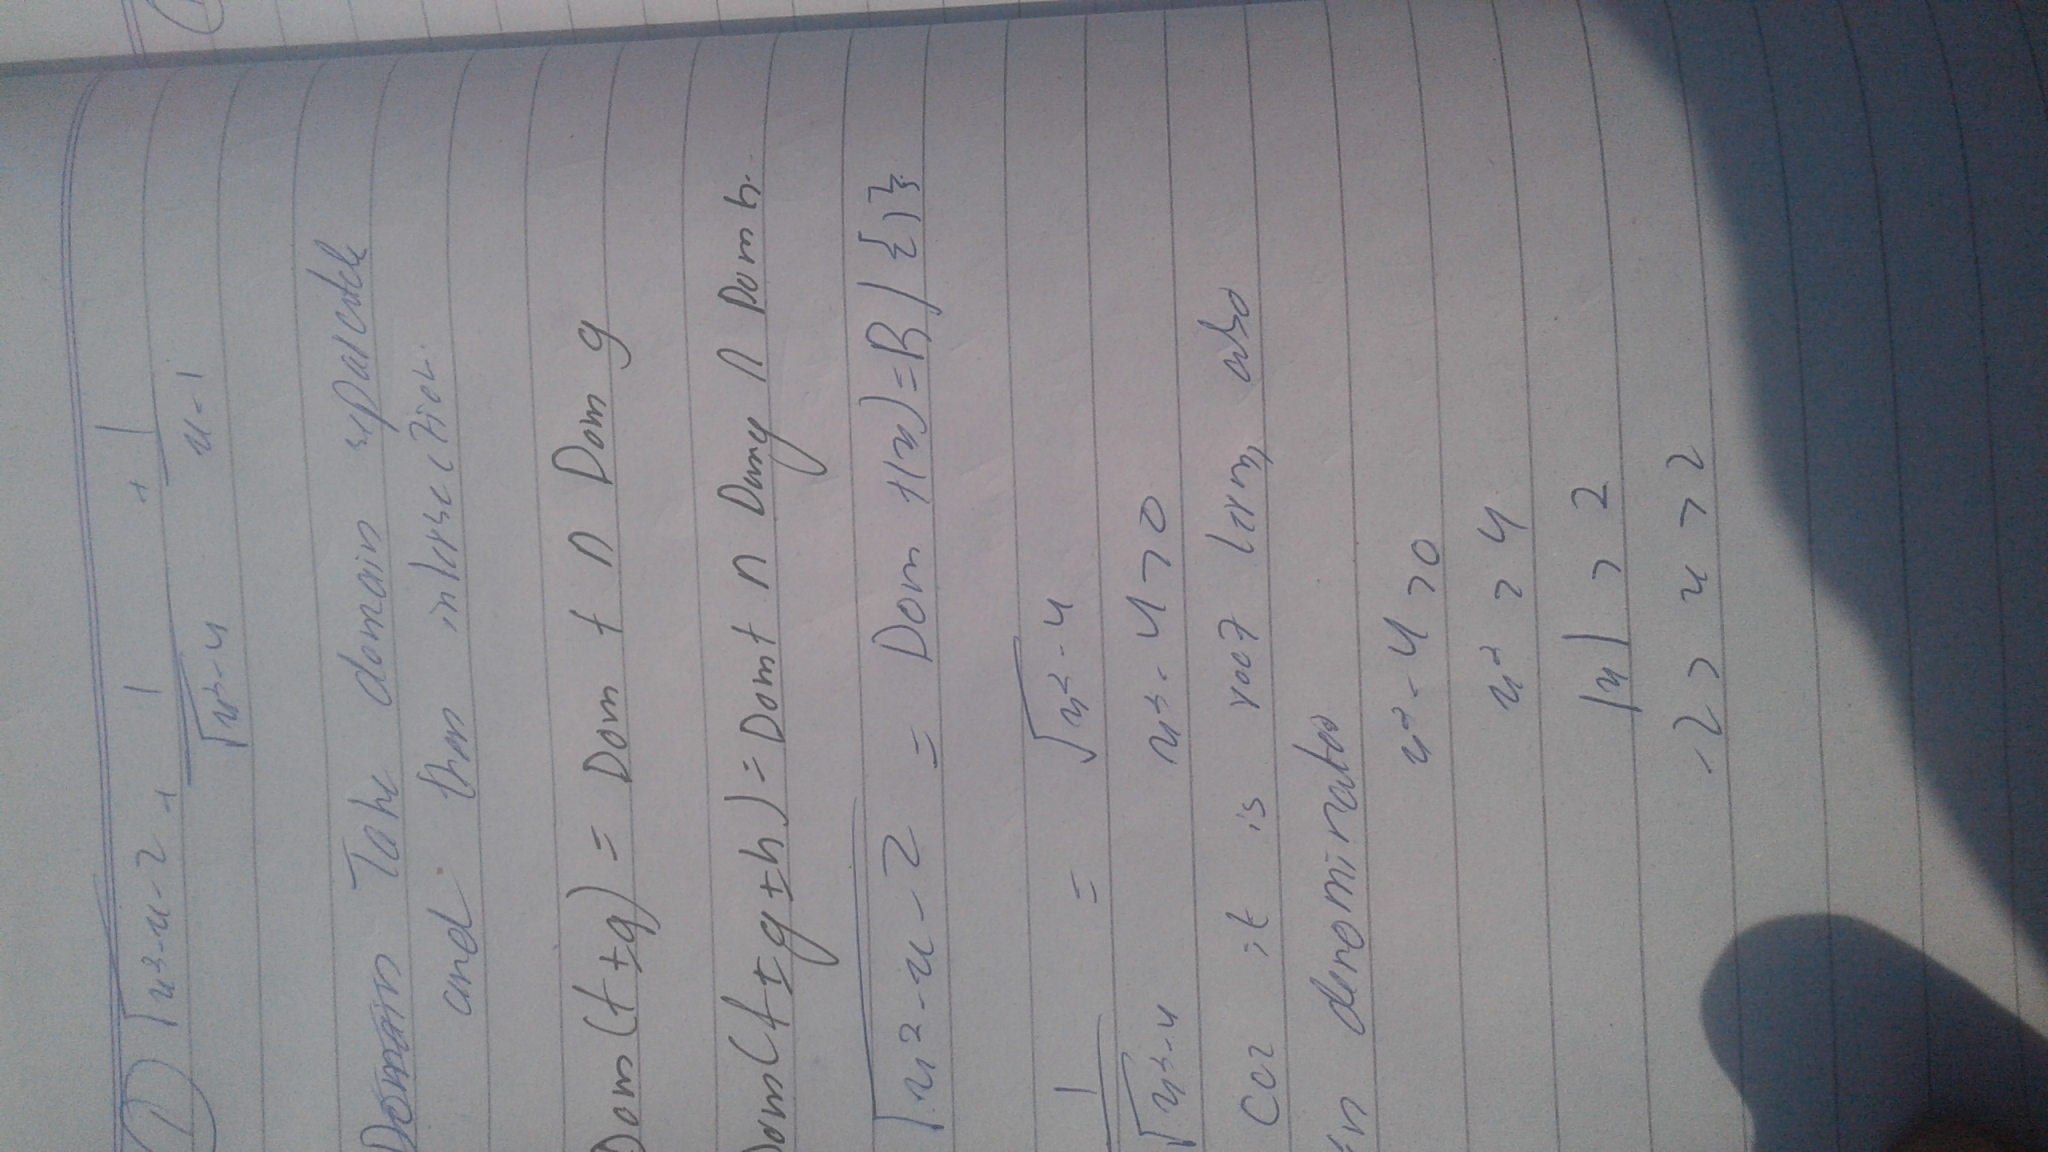 ① √x²-x-2 + 1/√x²-4 + 1/x-1
Domain Take domain separately
and then intersection.
Dom (f±g) = Dom f ∩ Dom g
Dom(f±g±h)=Domf ∩ Domg ∩ Dom h.
√x²-x-2 = Dom f(x)=R/{1}
1/√x²-4 = √x²-4
x²-4>0
Coz it is root term, also
in denominator
x²-4>0
x²>4
|x|>2
-2>x>2